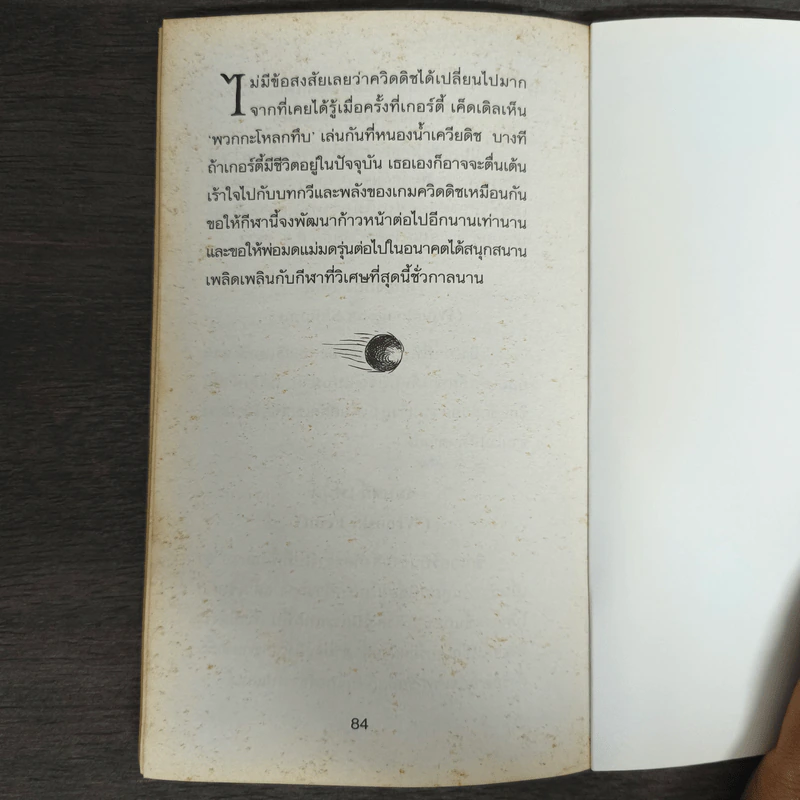 ไม่มีข้อสงสัยเลยว่าควิดดิชได้เปลี่ยนไปมาก
จากที่เคยได้รู้เมื่อครั้งที่เกอร์ตี้ เค็ดเดิลเห็น
‘พวกกะโหลกทึบ’ เล่นกันที่หนองน้ำเควียดิช บางที
ถ้าเกอร์ตี้มีชีวิตอยู่ในปัจจุบัน เธอเองก็อาจจะตื่นเต้น
เร้าใจไปกับบทกวีและพลังของเกมควิดดิชเหมือนกัน
ขอให้กีฬานี้จงพัฒนาก้าวหน้าต่อไปอีกนานเท่านาน
และขอให้พ่อมดแม่มดรุ่นต่อไปในอนาคตได้สนุกสนาน
เพลิดเพลินกับกีฬาที่วิเศษที่สุดนี้ชั่วกาลนาน
84